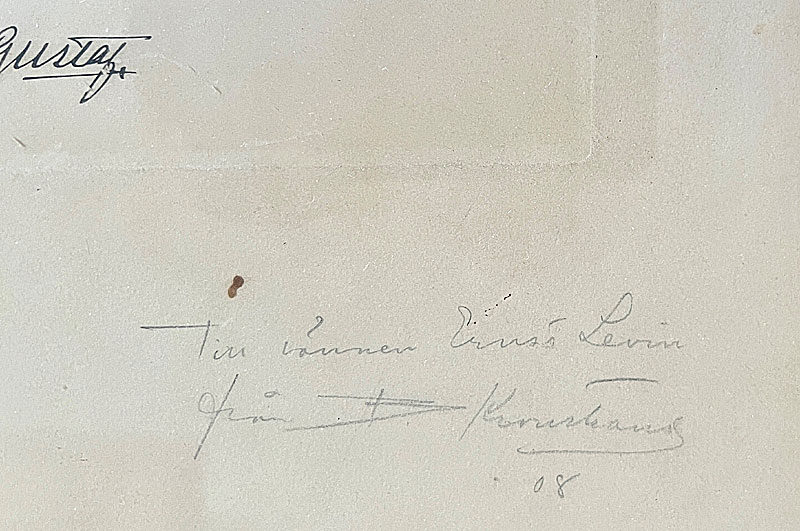 Gustaf
Till vännen Ernst Levin
från D. Kronstrand
08